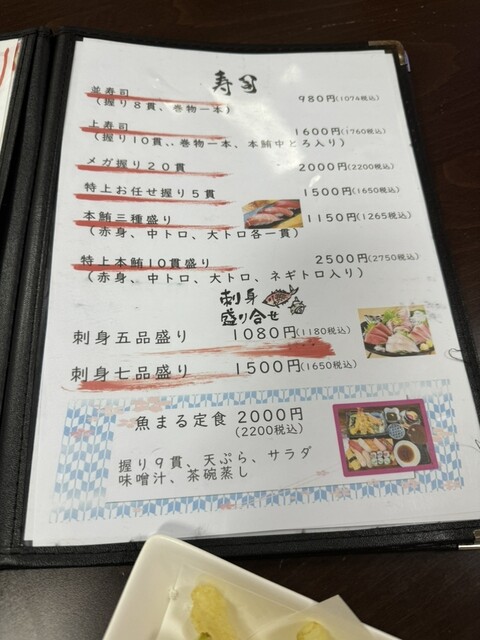 寿司
並寿司 980円(1074税込)
(握り8貫、巻物一本)
上寿司 1600円(1760税込)
(握り10貫、、巻物一本、本鮪中とろ入り)
メガ握り20貫 2000円(2200税込)
特上お任せ握り5貫 1500円(1650税込)
本鮪三種盛り 1150円(1265税込)
(赤身、中トロ、大トロ各一貫)
特上本鮪10貫盛り 2500円(2750税込)
(赤身、中トロ、大トロ、ネギトロ入り)
刺身
盛り合せ
刺身五品盛り 1080円(1180税込)
刺身七品盛り 1500円(1650税込)
魚まる定食 2000円
(2200税込)
握り9貫、天ぷら、サラダ
味噌汁、茶碗蒸し